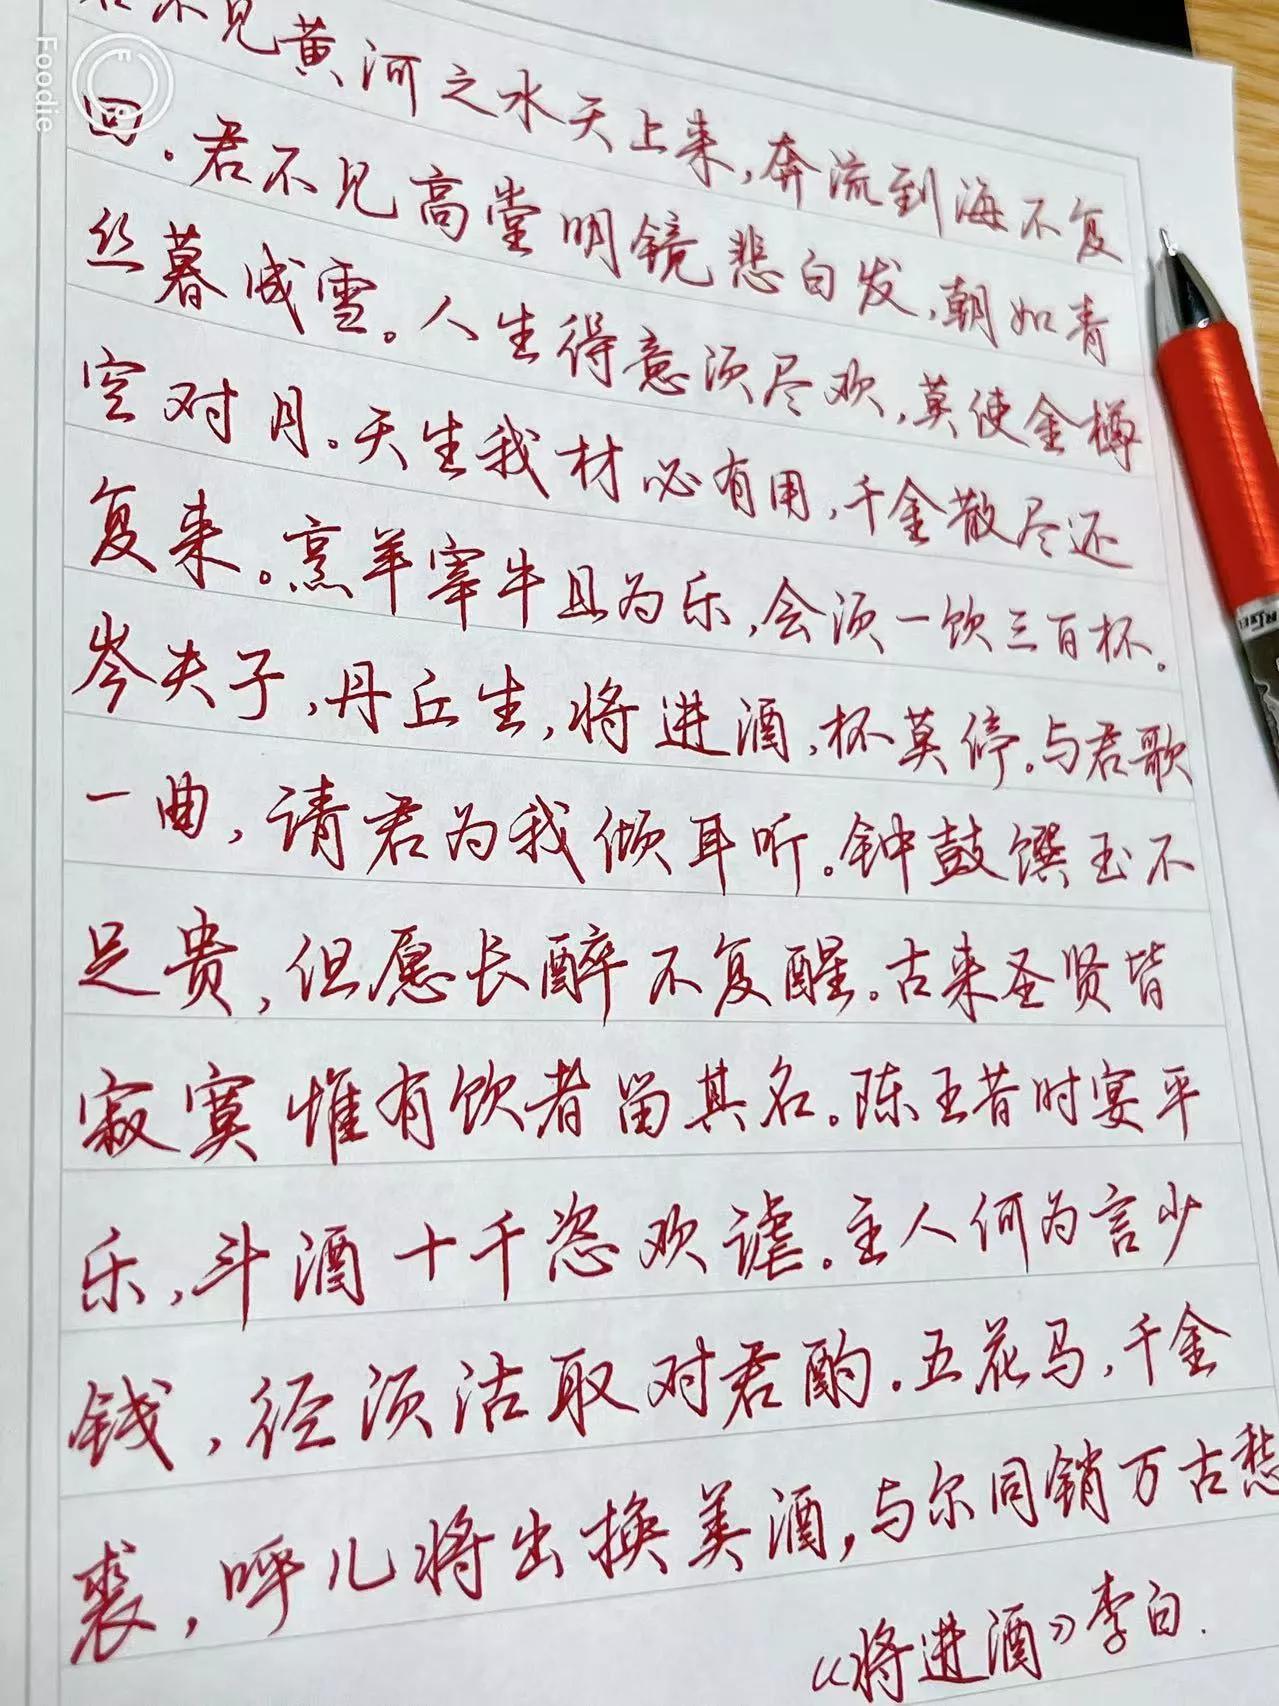 Foodie
君不见黄河之水天上来,奔流到海不复
回.君不见高堂明镜悲白发,朝如青
丝暮成雪。人生得意须尽欢,莫使金樽
空对月。天生我材必有用,千金散尽还
复来。烹羊宰牛且为乐,会须一饮三百杯。
岑夫子,丹丘生,将进酒,杯莫停。与君歌
一曲,请君为我倾耳听。钟鼓馔玉不
足贵,但愿长醉不复醒。古来圣贤皆
寂寞惟有饮者留其名。陈王昔时宴平
乐,斗酒十千恣欢谑.主人何为言少
钱,径须沽取对君酌.五花马,千金
裘,呼儿将出换美酒,与尔同销万古愁
《将进酒》李白.